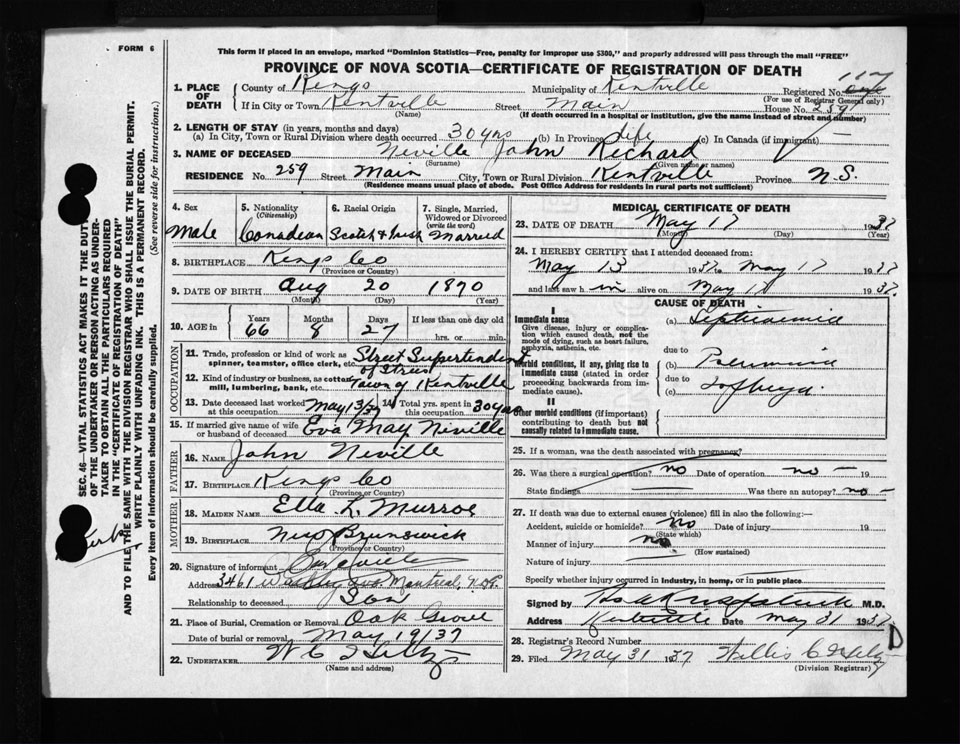 FORM 6
This form if placed in an envelope, marked "Dominion Statistics—Free, penalty for improper use $300," and properly addressed will pass through the mail "FREE"
PROVINCE OF NOVA SCOTIA—CERTIFICATE OF REGISTRATION OF DEATH
117
1. PLACE OF DEATH County of Kings Municipality of Kentville Registered No.
(For use of Registrar General only)
If in City or Town Kentville Street Main House No. 259
(Name) (If death occurred in a hospital or institution, give the name instead of street and number)
2. LENGTH OF STAY (in years, months and days)
(a) In City, Town or Rural Division where death occurred 30 yrs (b) In Province life (c) In Canada (if immigrant)
3. NAME OF DECEASED Neville John Richard
(Surname) (Given name or names)
RESIDENCE No. 259 Street Main City, Town or Rural Division Kentville Province N.S.
(Residence means usual place of abode. Post Office Address for residents in rural parts not sufficient)
4. Sex Male
5. Nationality (Citizenship) Canadian
6. Racial Origin Scotch & Irish
7. Single, Married, Widowed or Divorced (write the word) Married
8. BIRTHPLACE Kings Co
(Province or Country)
9. DATE OF BIRTH Aug 20 1870
(Month) (Day) (Year)
10. AGE in Years 66 Months 8 Days 27 If less than one day old hrs. or min.
OCCUPATION
11. Trade, profession or kind of work as spinner, teamster, office clerk, etc. Street Supertendent of Street
12. Kind of industry or business, as cotton mill, lumbering, bank, etc. Town of Kentville
13. Date deceased last worked at this occupation May 13/37 14. Total yrs. spent in this occupation 30 yrs
15. If married give name of wife or husband of deceased Eva May Neville
FATHER
16. NAME John Neville
17. BIRTHPLACE Kings Co
(Province or Country)
MOTHER
18. MAIDEN NAME Ella L. Munroe
19. BIRTHPLACE New Brunswick
(Province or Country)
20. Signature of informant
Address 3461 Ave. Montreal, P.Q.
Relationship to deceased Son
21. Place of Burial, Cremation or Removal Oak Grove
Date of burial or removal May 19/37
22. UNDERTAKER W C
(Name and address)
MEDICAL CERTIFICATE OF DEATH
23. DATE OF DEATH May 17 1937
(Month) (Day) (Year)
24. I HEREBY CERTIFY that I attended deceased from:
May 13 1937 to May 17 1937
and last saw him alive on May 17 1937.
CAUSE OF DEATH
I
Immediate cause (a) Septicaemia
Give disease, injury or complication which caused death, not the mode of dying, such as heart failure, asphyxia, asthenia, etc.
due to
Morbid conditions, if any, giving rise to immediate cause (stated in order proceeding backwards from immediate cause).
(b) Pneumonia
due to
(c)
II
Other morbid conditions (if important) contributing to death but not causally related to immediate cause.
25. If a woman, was the death associated with pregnancy?
26. Was there a surgical operation? no Date of operation no — 19
State findings Was there an autopsy? no —
27. If death was due to external causes (violence) fill in also the following:—
Accident, suicide or homicide? no Date of injury 19
(State which)
Manner of injury no
(How sustained)
Nature of injury
Specify whether injury occurred in industry, in home, or in public place
Signed by M.D.
Address Kentville Date May 31 1937
28. Registrar's Record Number
D
29. Filed May 31 1937 Willis C
(Division Registrar)
SEC. 46—VITAL STATISTICS ACT MAKES IT THE DUTY
OF THE UNDERTAKER OR PERSON ACTING AS UNDER-
TAKER TO OBTAIN ALL THE PARTICULARS REQUIRED
IN THE "CERTIFICATE OF REGISTRATION OF DEATH"
AND TO FILE THE SAME WITH THE DIVISION REGISTRAR WHO SHALL ISSUE THE BURIAL PERMIT.
WRITE PLAINLY WITH UNFADING INK. THIS IS A PERMANENT RECORD.
Every item of information should be carefully supplied. (See reverse side for instructions.)